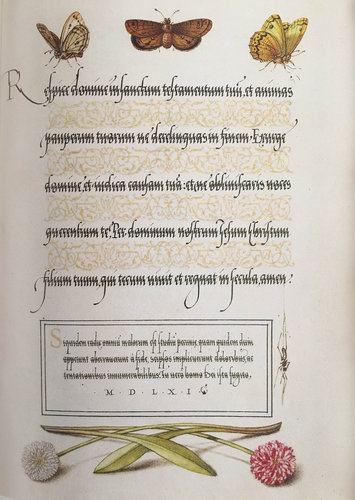 Respice domine in sanctum testamentum tuũ, et animas
pauperum tuorum ne derelinquas in finem. Exurge
domine, et iudica causam tuã: et ne obliuiscaris uoces
querentium te. Per dominum nostrum Jesum Christum
filium tuum, qui tecum uiuit et regnat in secula, amen.
Siquidem radix omniũ malorum est studiũ pecunie, quam quidam dum
appetunt aberrauerunt à fide, seipsos implicuerunt doloribus, ac
tentationibus innumerabilibus. Tu uero homo Dei ista fugito.
M D L X I